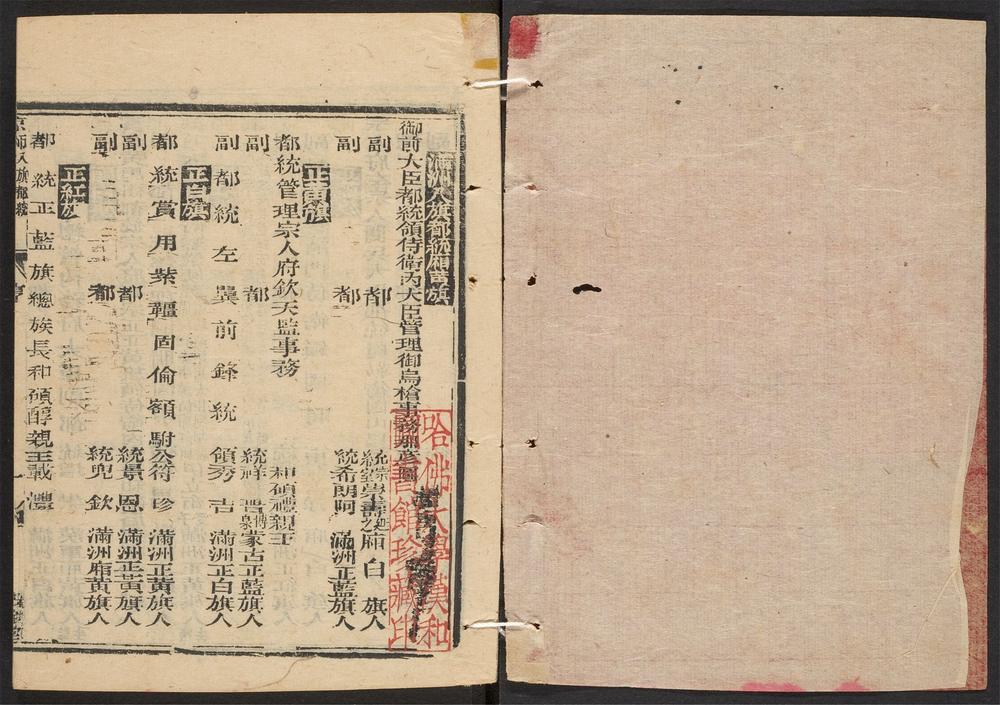 滿洲八旗都統廂黃旗
御前大臣都統領侍衛內大臣管理御鳥槍事務那彥圖
副都統崇壽廂白旗人
副都統希朗阿 滿洲正藍旗人
正黃旗
都統管理宗人府欽天監事務 和碩禮親王
副都統祥 蒙古正藍旗人
副都統左翼前鋒統領秀吉 滿洲正白旗人
正白旗
都統賞用紫韁固倫額駙公符珍 滿洲正黃旗人
副都統景恩 滿洲正黃旗人
副都統兜欽 滿洲廂黃旗人
正紅旗
都統正藍旗總族長和碩醇親王載灃
京師八旗都統
哈佛大學漢和
圖書館珍藏印